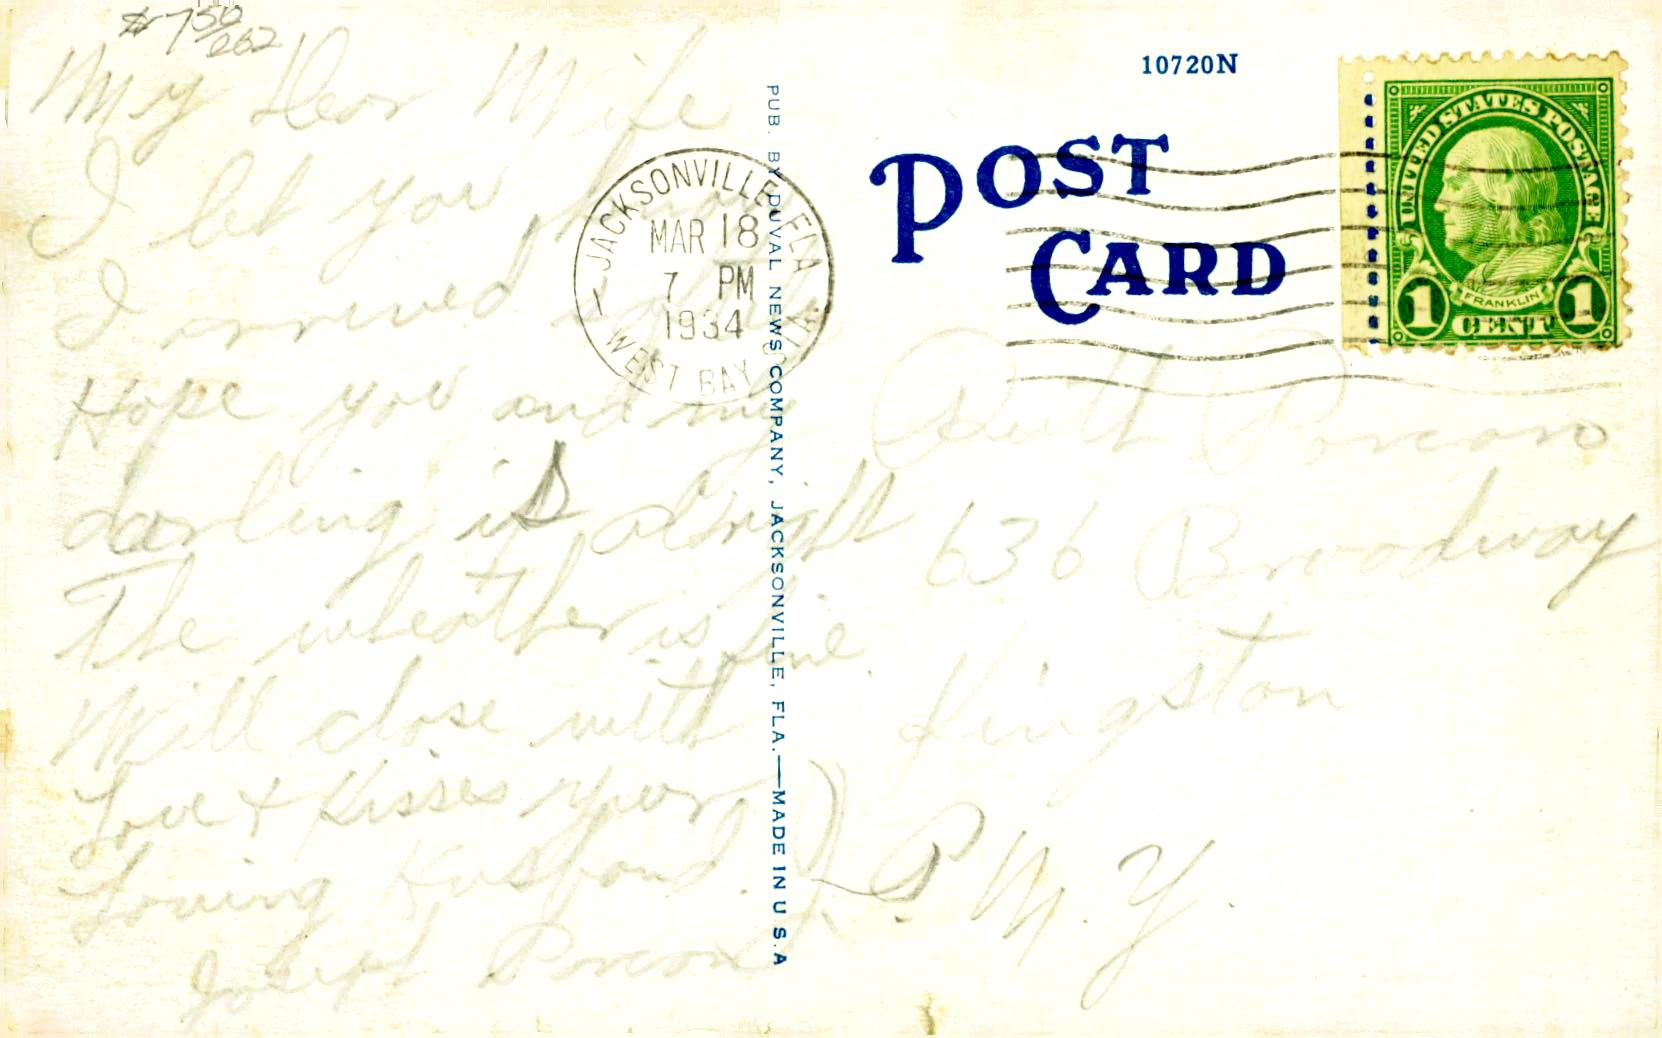 $ 7 50/262
My Dear Wife
I let you
I arrived
Hope you and my
darling is alright
The wheather is fine
Will close with
Love & Kisses your
Loving Husband.
Joseph Porcon
J. P.
JACKSONVILLE, FLA.
MAR 18
7 PM
1934
WEST BAY
PUB. BY DUVAL NEWS COMPANY, JACKSONVILLE, FLA.—MADE IN U.S.A
10720N
POST
CARD
UNITED STATES POSTAGE
FRANKLIN
1 CENT 1
Ruth Porcon
636 Broadway
Kingston
N. Y.